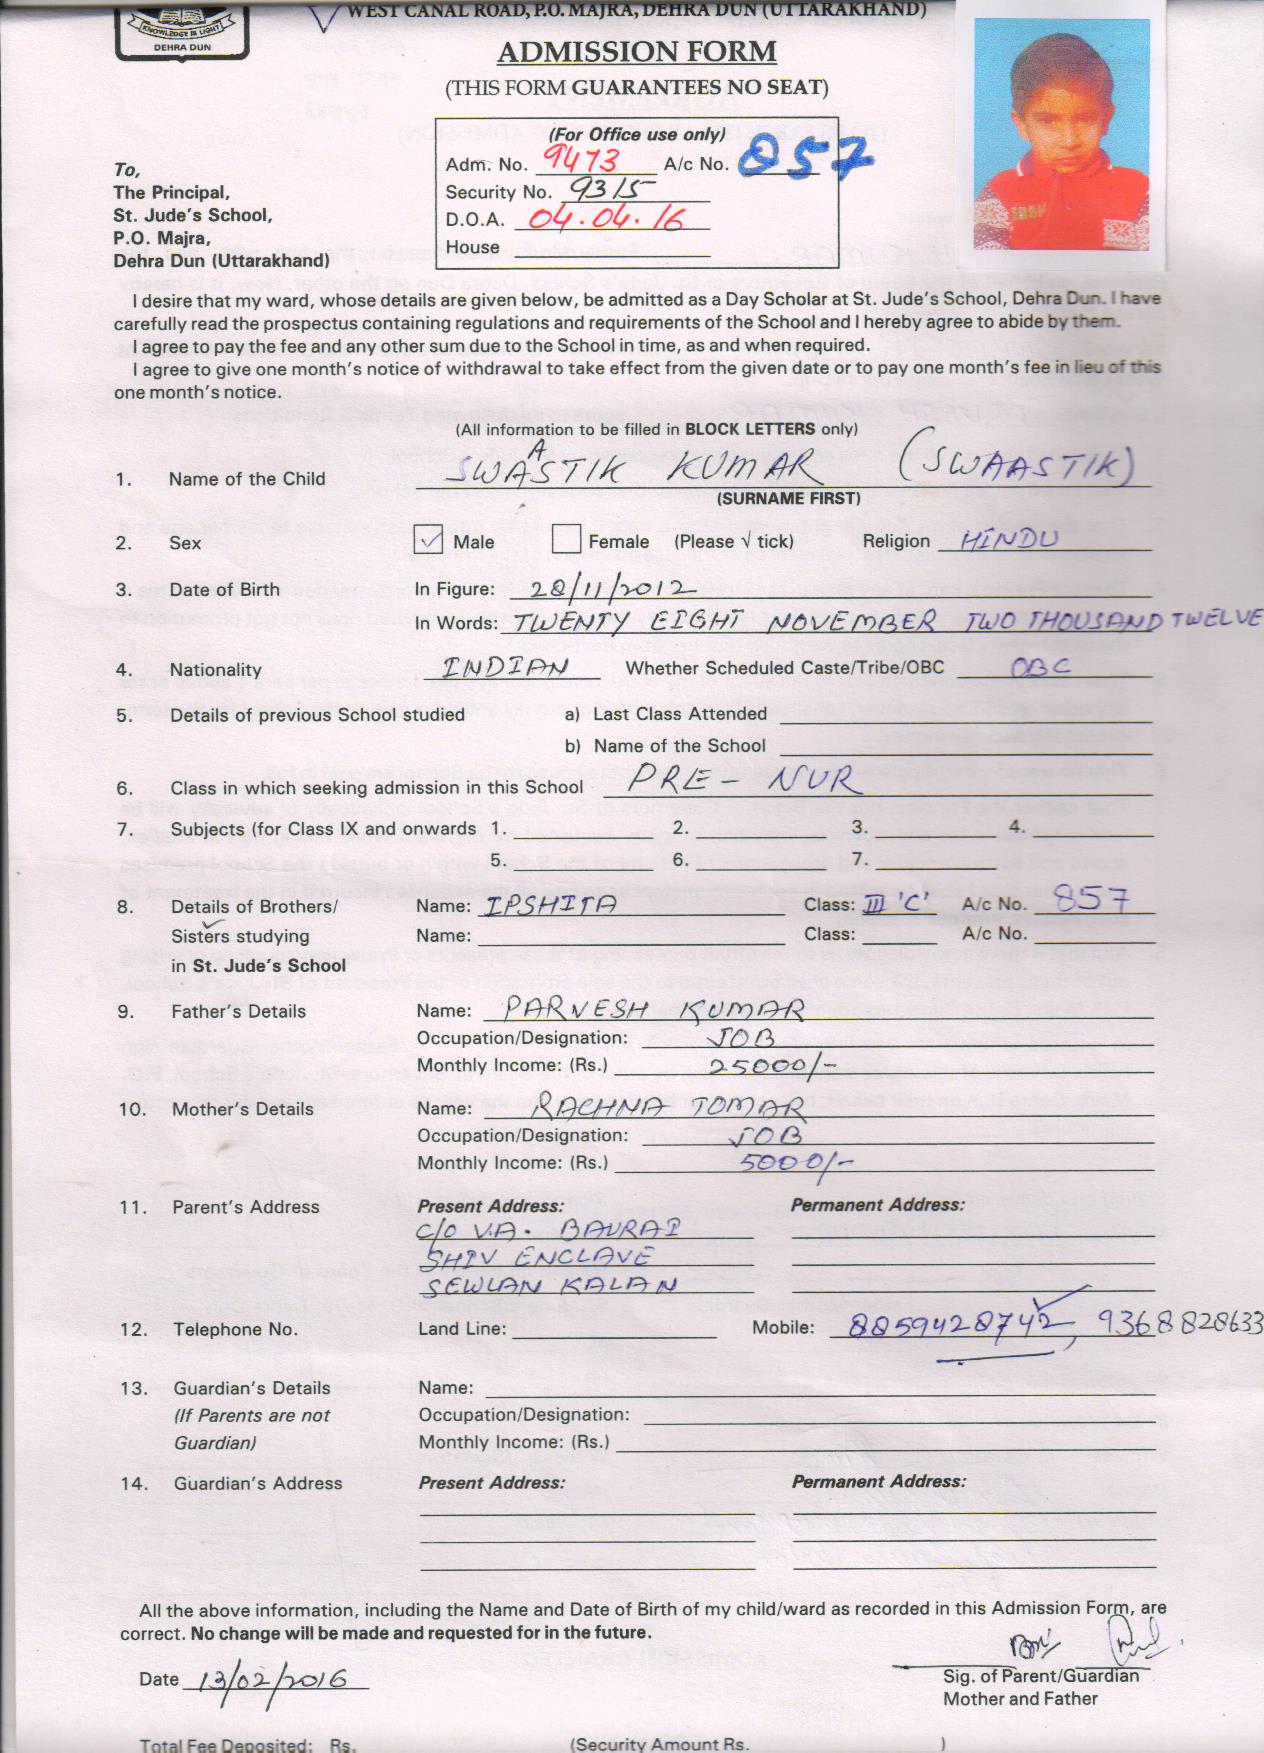 WEST CANAL ROAD, P.O. MAJRA, DEHRA DUN (UTTARAKHAND)
KNOWLEDGE IS LIGHT
DEHRA DUN
ADMISSION FORM
(THIS FORM GUARANTEES NO SEAT)
(For Office use only)
Adm. No. 9473 A/c No. 857
Security No. 9315
D.O.A. 04.04.16
House
To,
The Principal,
St. Jude's School,
P.O. Majra,
Dehra Dun (Uttarakhand)
I desire that my ward, whose details are given below, be admitted as a Day Scholar at St. Jude's School, Dehra Dun. I have
carefully read the prospectus containing regulations and requirements of the School and I hereby agree to abide by them.
I agree to pay the fee and any other sum due to the School in time, as and when required.
I agree to give one month's notice of withdrawal to take effect from the given date or to pay one month's fee in lieu of this
one month's notice.
(All information to be filled in BLOCK LETTERS only)
A
1. Name of the Child SWASTIK KUMAR (SWAASTIK)
(SURNAME FIRST)
2. Sex ✓ Male Female (Please √ tick) Religion HINDU
3. Date of Birth In Figure: 28/11/2012
In Words: TWENTY EIGHT NOVEMBER TWO THOUSAND TWELVE
4. Nationality INDIAN Whether Scheduled Caste/Tribe/OBC OBC
5. Details of previous School studied a) Last Class Attended
b) Name of the School
6. Class in which seeking admission in this School PRE - NUR
7. Subjects (for Class IX and onwards 1. 2. 3. 4.
5. 6. 7.
8. Details of Brothers/ Name: IPSHITA Class: III 'C' A/c No. 857
Sisters studying Name: Class: A/c No.
in St. Jude's School
9. Father's Details Name: PARVESH KUMAR
Occupation/Designation: JOB
Monthly Income: (Rs.) 25000/-
10. Mother's Details Name: RACHNA TOMAR
Occupation/Designation: JOB
Monthly Income: (Rs.) 5000/-
11. Parent's Address Present Address: Permanent Address:
C/O V.A. BAURAI
SHIV ENCLAVE
SEWLAN KALAN
12. Telephone No. Land Line: Mobile: 8859428742, 9368828633
13. Guardian's Details Name:
(If Parents are not Occupation/Designation:
Guardian) Monthly Income: (Rs.)
14. Guardian's Address Present Address: Permanent Address:
All the above information, including the Name and Date of Birth of my child/ward as recorded in this Admission Form, are
correct. No change will be made and requested for in the future.
Date 13/02/2016
Sig. of Parent/Guardian
Mother and Father
Total Fee Deposited: Rs. (Security Amount Rs. )